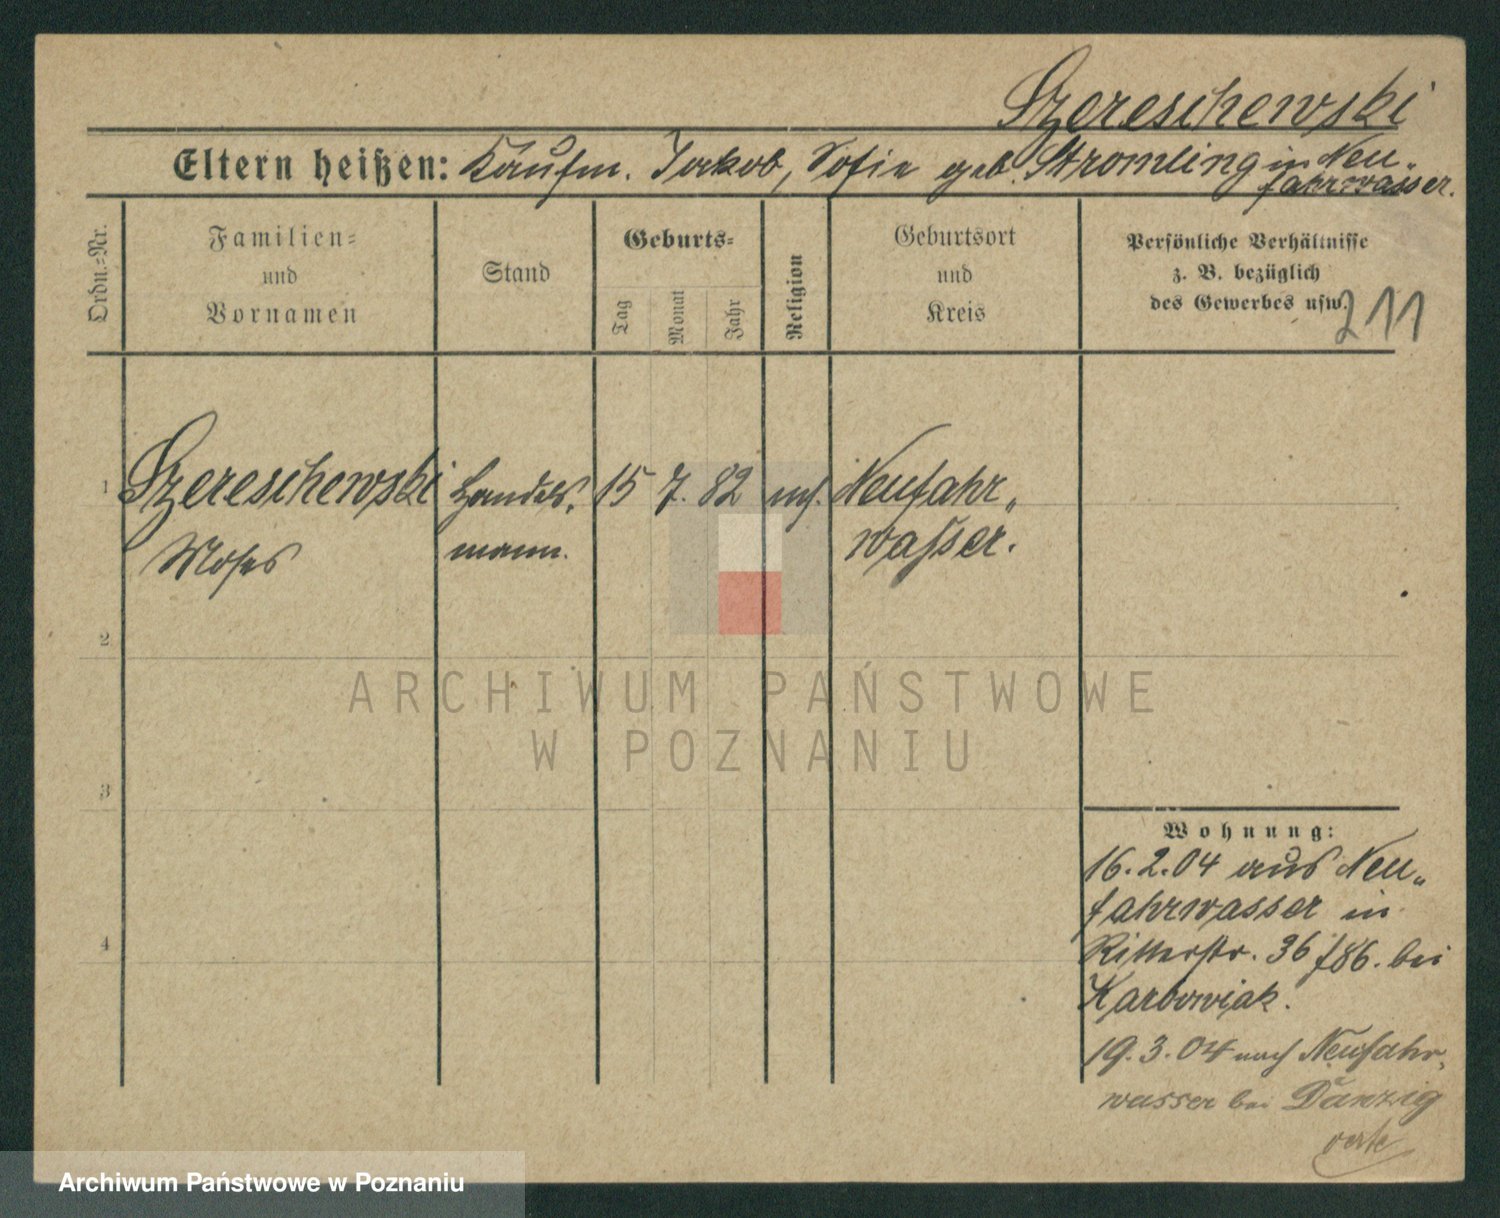 Szereschewski
Eltern heißen: Kaufm. Jakob, Sofie geb. Stromling in Neu-
fahrwasser.
Ordn.-Nr.
Familien-
und
Vornamen
Stand
Geburts-
Tag
Monat
Jahr
Religion
Geburtsort
und
Kreis
Persönliche Verhältnisse
z. B. bezüglich
des Gewerbes usw.
211
1 Szereschewski Handels- 15 7. 82 Neufahr-
Moses mann. wasser.
2
ARCHIWUM PAŃSTWOWE
W POZNANIU
3
Wohnung:
16.2.04 aus Neu-
fahrwasser in
4
Ritterstr. 36 bei
Karbowiak.
19.3.04 nach Neufahr-
wasser bei Danzig
Archiwum Państwowe w Poznaniu